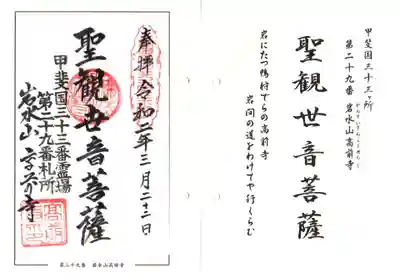 甲斐国三十三ヶ所
第二十九番 岩水山高前寺
聖観世音菩薩
岩にたつ鴨村でらの高前寺
岩間の道をわけてや行くらむ
奉拝 令和二年三月二十二日
聖観世音菩薩
甲斐国三十三番霊場
第二十九番札所
岩水山高前寺
第二十九番 岩水山高前寺